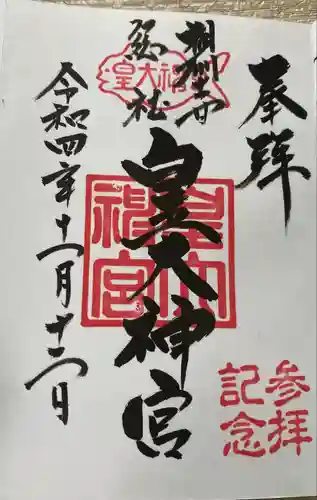 奉拝
総社
皇大神
皇大神宮
皇大
神宮
令和四年十一月十二日
参拝
記念